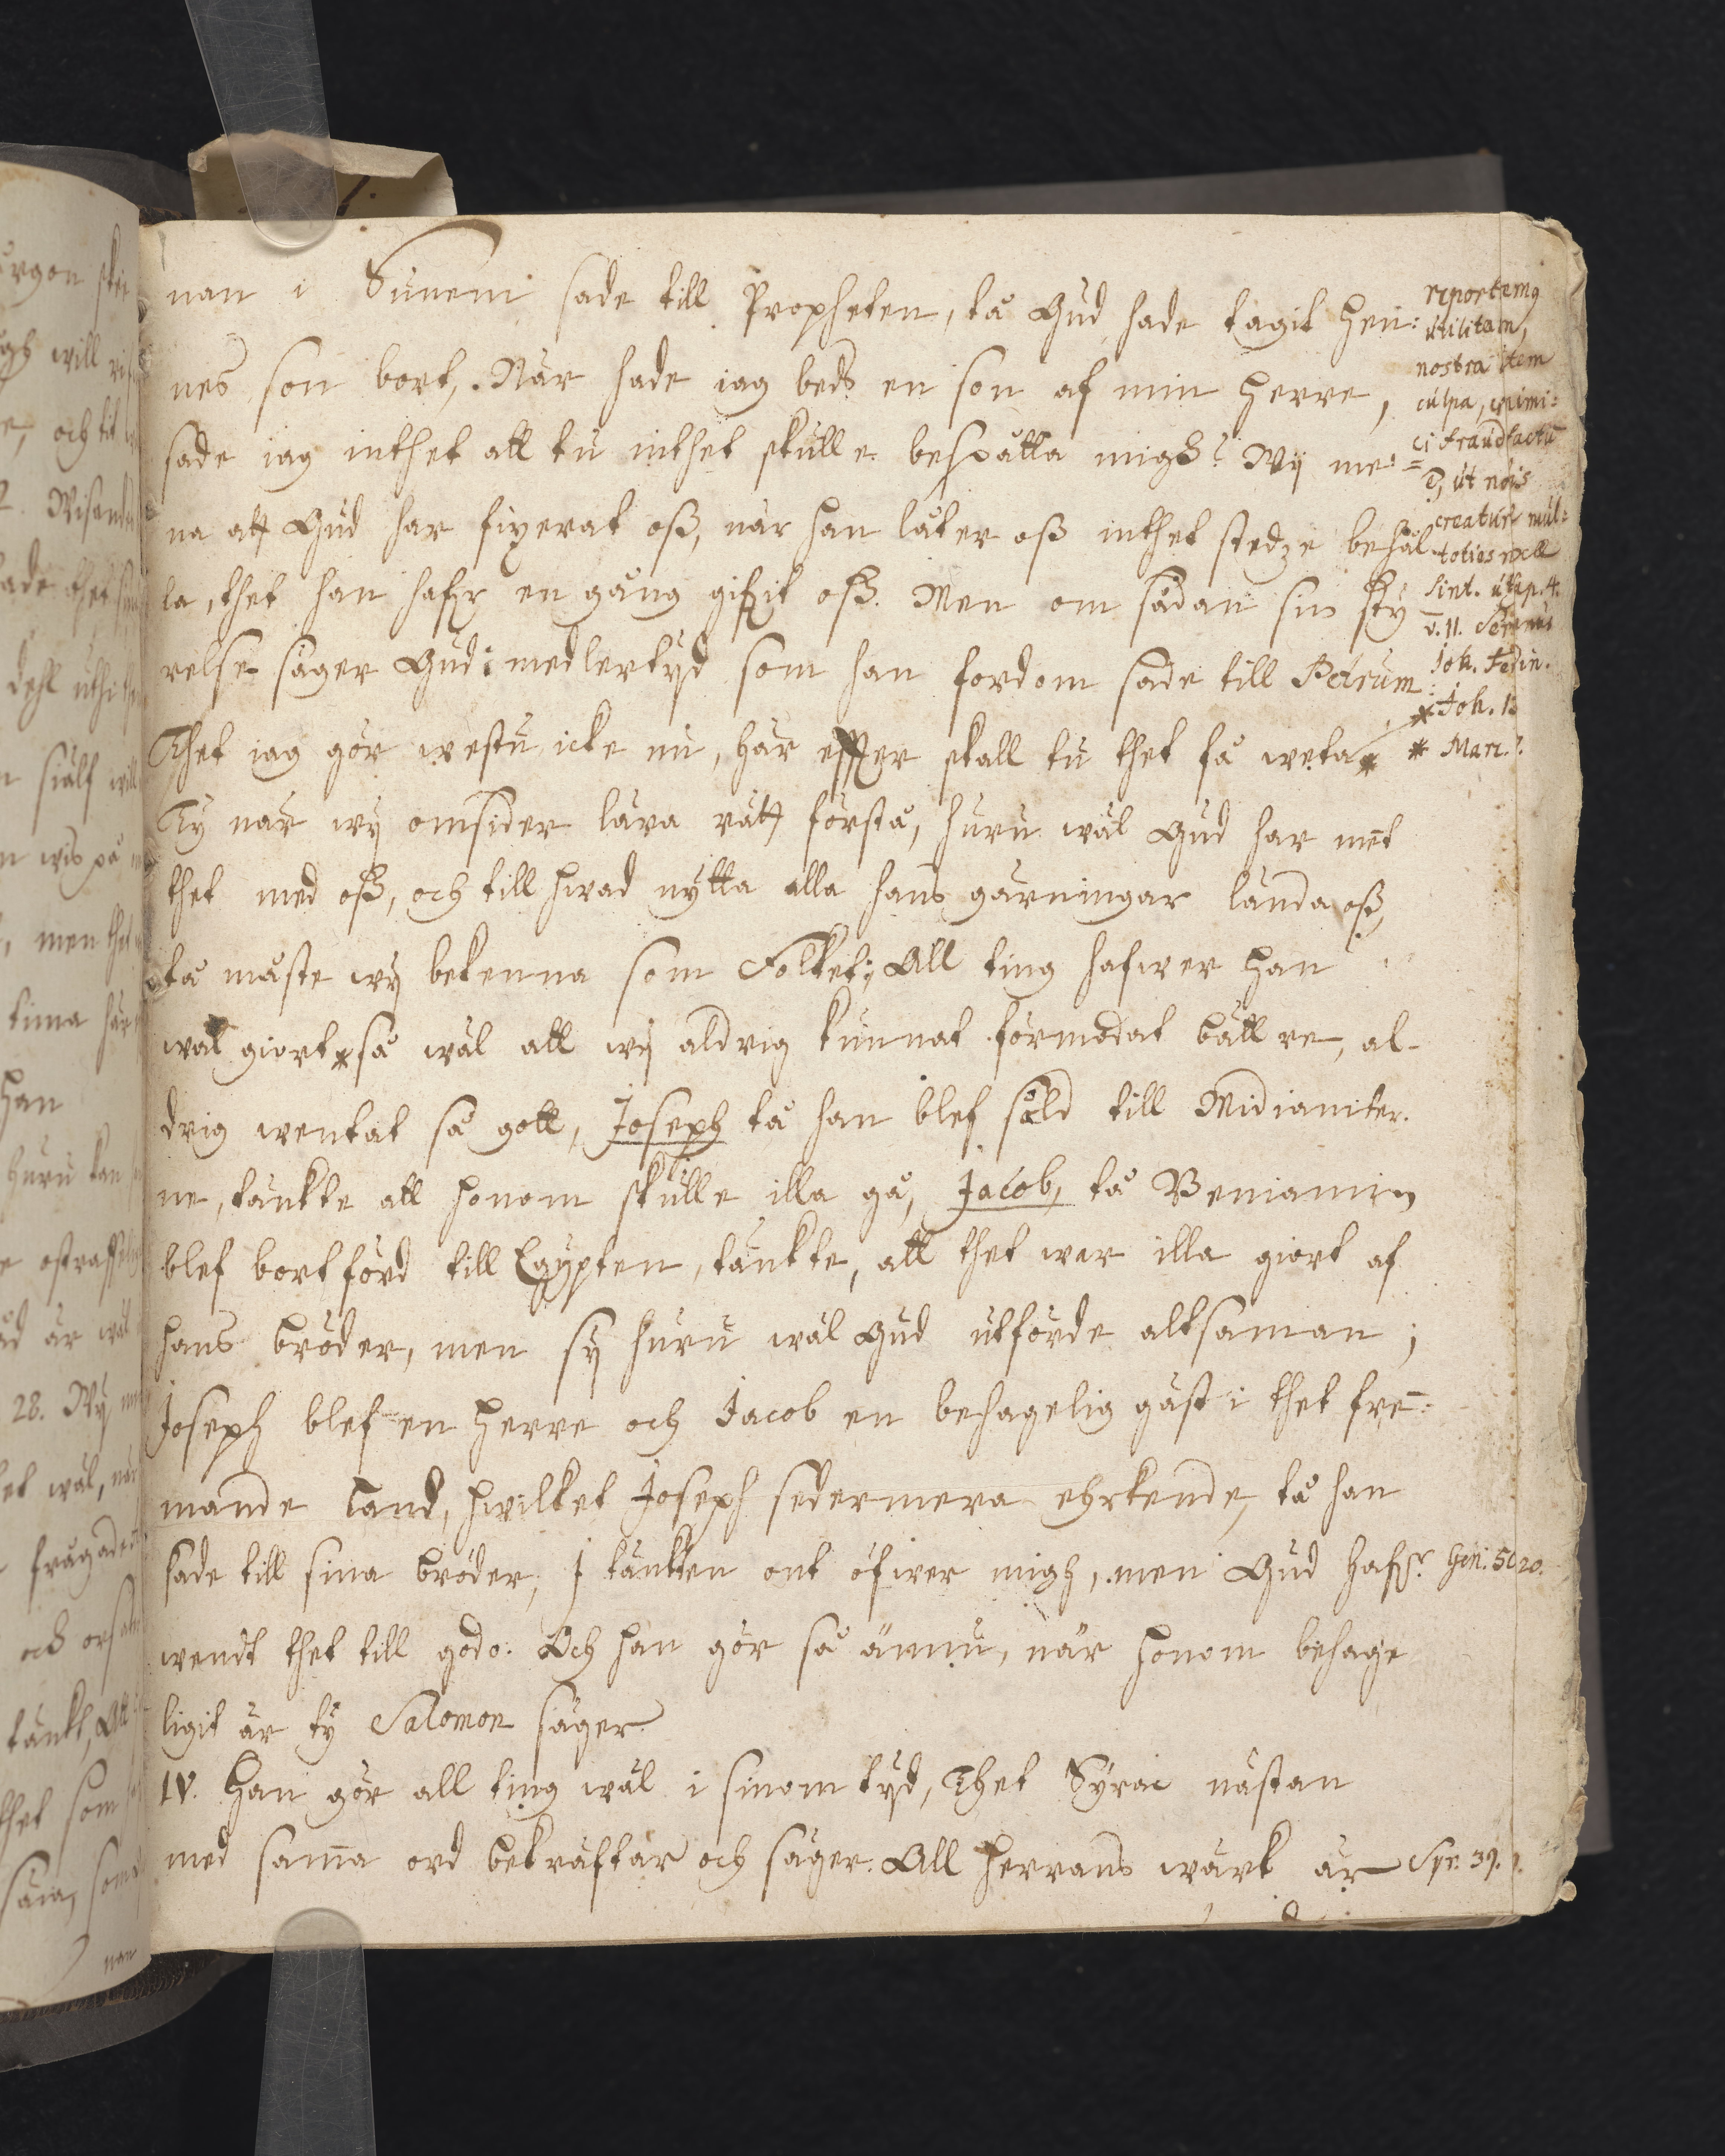 nan i Sunem sade till Propheten, tå Gud hade tagit hen:
nes son bort, När hade iag beds en son af min herre,
sade iag inthet att tu inthet skulle bespåtta migh? Wij me:
na att Gud har fixerat oß, når han låter oß inthet stedze behål
la, thet han hafr en gång gifvit oß. Men om sådan sin sty
relse säger Gud i medlertijd som han fordom sade till Petrum:
Thet iag gör westu icke nu, här effter skall tu thet få weta *
Ty när wij omsider lära rätt förstå, huru wäl Gud har ment
thet med oß, och till hwad nytta alla hans gärningar lända oß,
tå måste wij bekenna som Folket; All ting hafwer han
wäl giort * så wäl att wij aldrig kunnat förmodat bättre, al-
drig wentat så gott, Joseph tå han blef såld till Midianiter.
ne, tänkte att honom skulle illa gå, Jacob, tå Beniamin
blef bortförd till Egypten, tänkte, att thet war illa giort af
hans bröder, men sij huru wäl Gud utförde altsaman;
Joseph blef en herre och Jacob en behagelig gäst i thet fre-
mande land, hwilket Joseph sedermera ehrkende, tå han
sade till sina bröder, I tänkten ont öfwer migh, men Gud hafr
wendt thet till godo: Och han gör så ännu, när honom behage
ligit är ty Salomon säger
IV. Han gör all ting wäl i sinom tijd, Thet Syrac nästan
med sama ord bekräftar och säger. All Herrans wärk är
reportemq
utilitatem,
nostra item
culpa,
ut nois
creatur mul:
toties
v. 11.
Joh.
* Joh. 13
* Marc. 7.
Gen: 50 20.
Syr. 39.